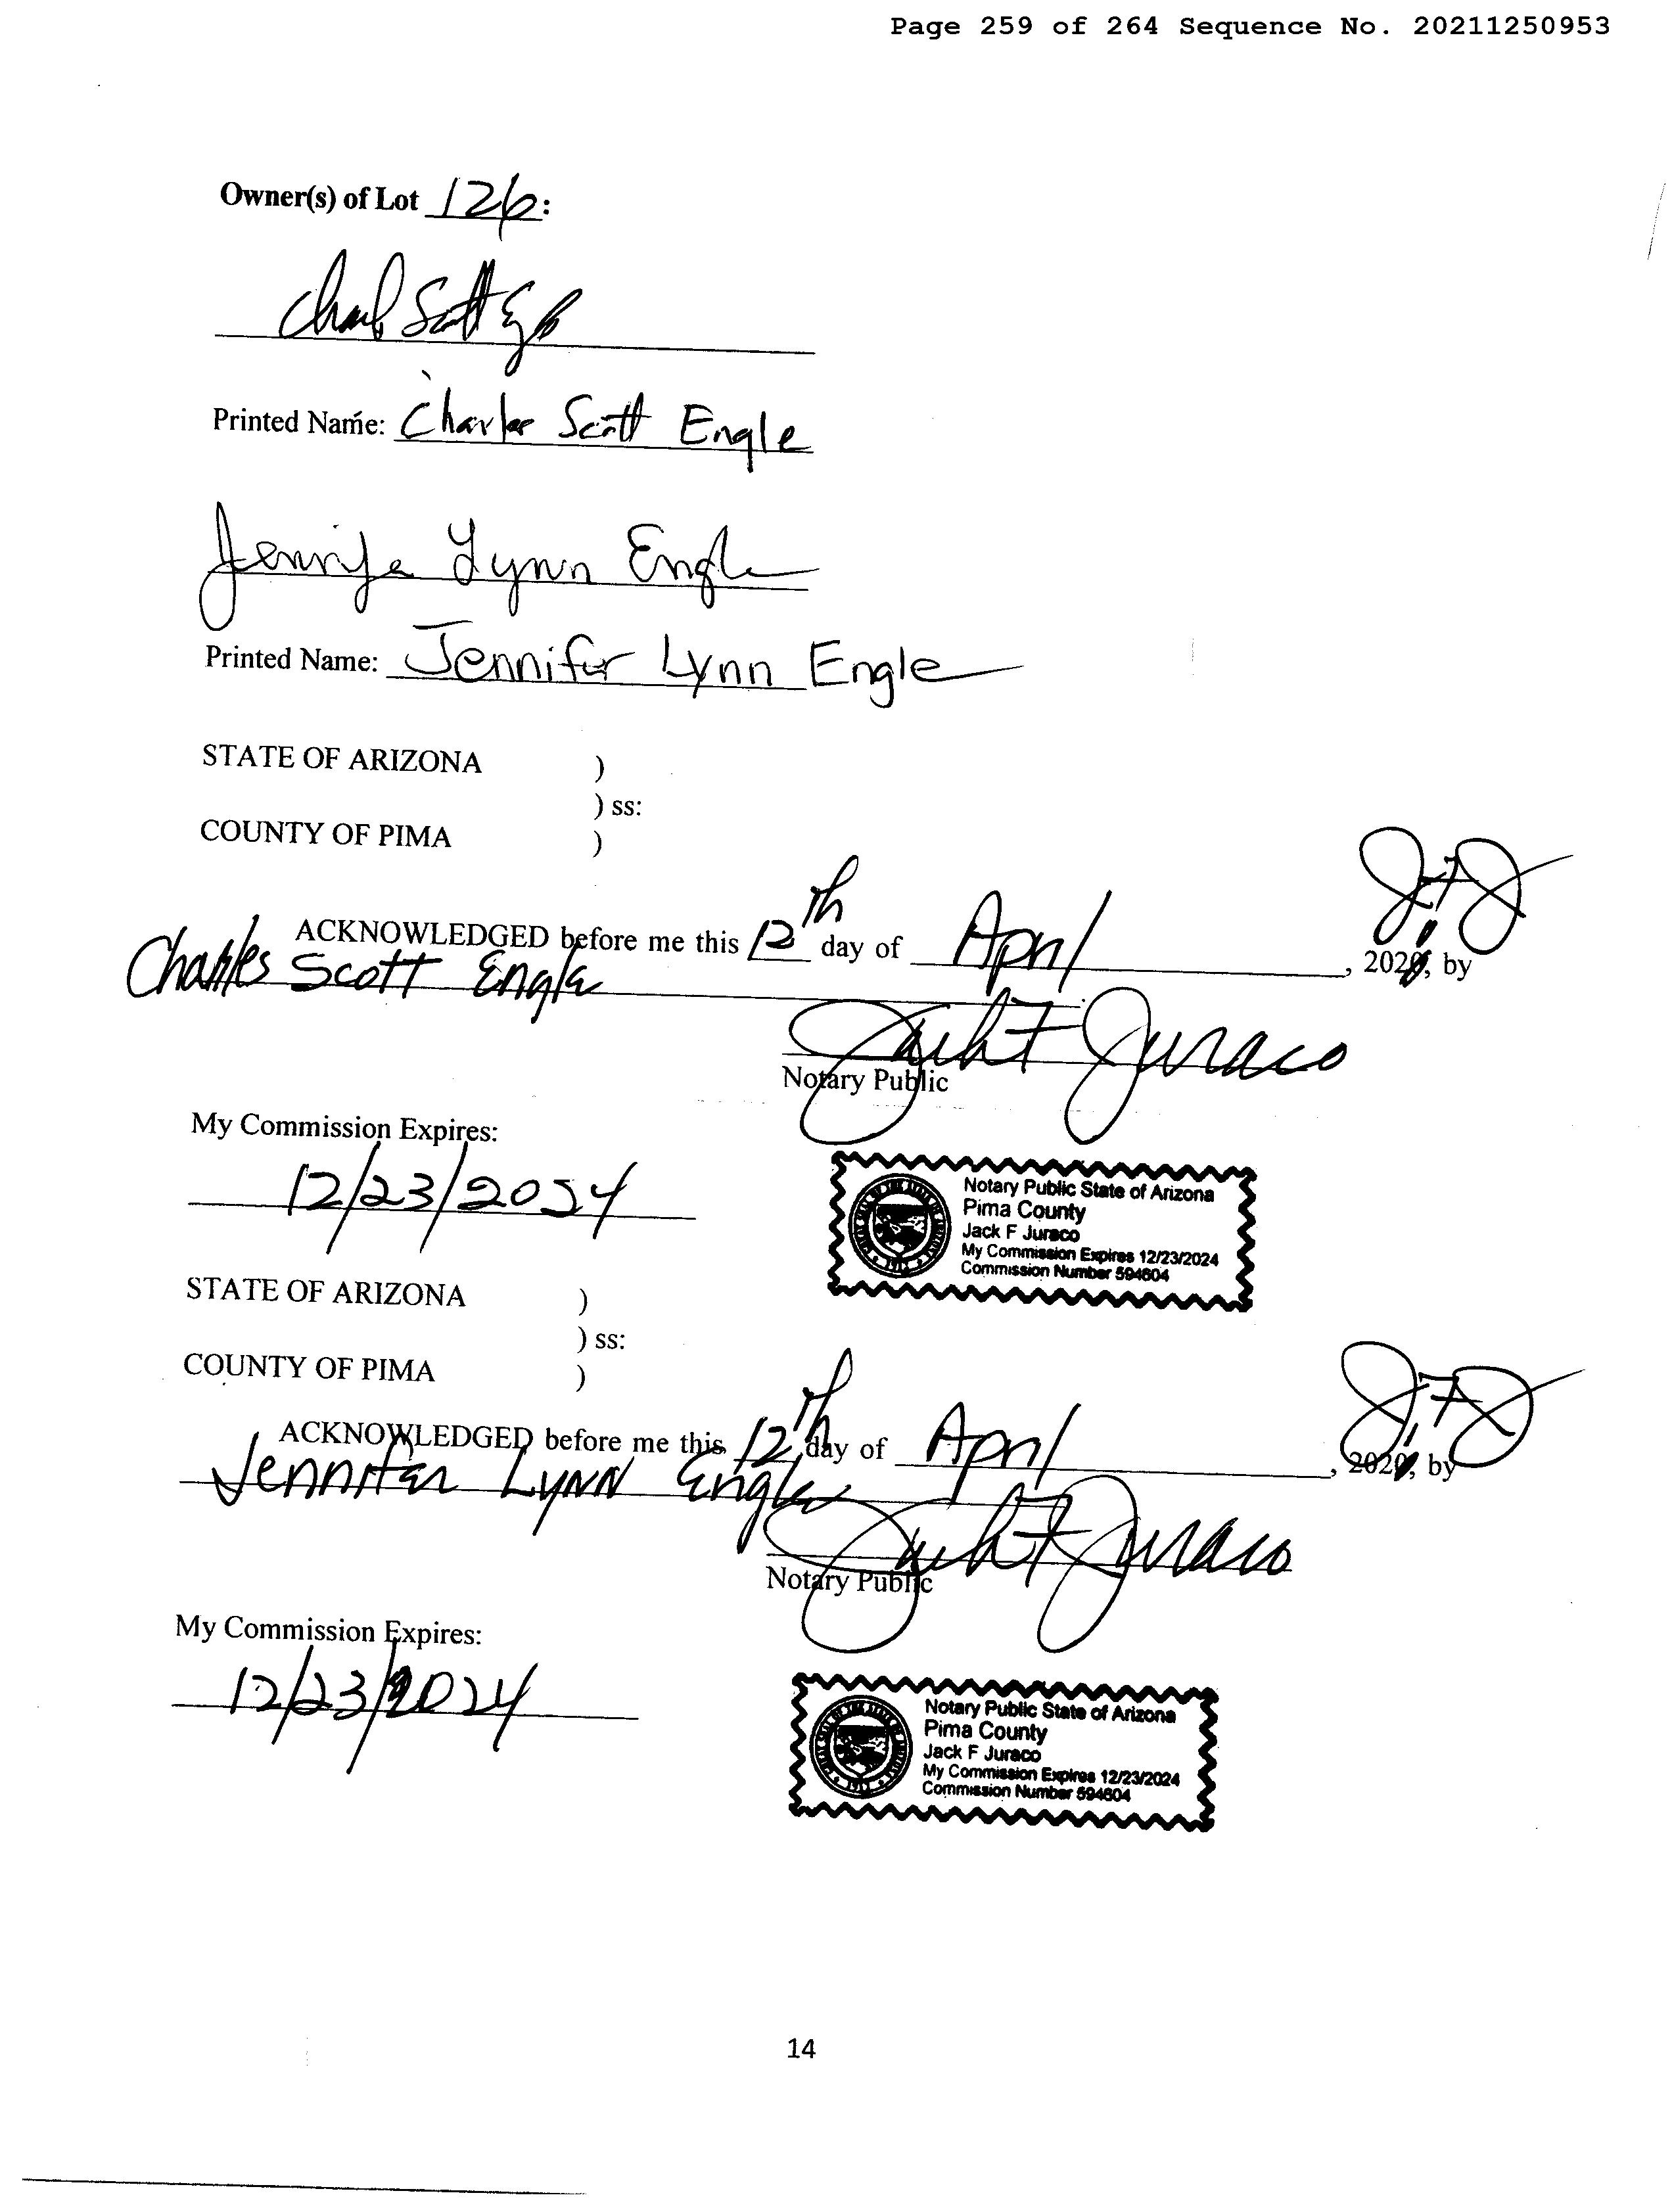 Page 259 of 264 Sequence No. 20211250953
Owner(s) of Lot 126:
Charles Scott Engle
Printed Name: Charles Scott Engle
Jennifer Lynn Engle
Printed Name: Jennifer Lynn Engle
STATE OF ARIZONA )
) ss:
COUNTY OF PIMA )
JFJ
ACKNOWLEDGED before me this 12th day of April, 2021, by
Charles Scott Engle
Jack F Juraco
Notary Public
My Commission Expires:
12/23/2024
Notary Public State of Arizona
Pima County
Jack F Juraco
My Commission Expires 12/23/2024
Commission Number 594604
STATE OF ARIZONA )
) ss:
COUNTY OF PIMA )
JFJ
ACKNOWLEDGED before me this 12th day of April, 2021, by
Jennifer Lynn Engle
Jack F Juraco
Notary Public
My Commission Expires:
12/23/2024
Notary Public State of Arizona
Pima County
Jack F Juraco
My Commission Expires 12/23/2024
Commission Number 594604
14